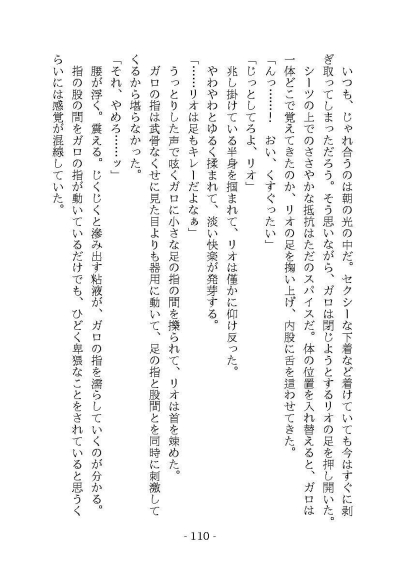 いつも、じゃれ合うのは朝の光の中だ。セクシーな下着など着けていても今はすぐに剥
ぎ取ってしまっただろう。そう思いながら、ガロは閉じようとするリオの足を押し開いた。
シーツの上でのささやかな抵抗はただのスパイスだ。体の位置を入れ替えると、ガロは
一体どこで覚えてきたのか、リオの足を掬い上げ、内股に舌を這わせてきた。
「んっ……！　おい、くすぐったい」
「じっとしてろよ、リオ」
兆し掛けている半身を掴まれて、リオは僅かに仰け反った。
やわやわとゆるく揉まれて、淡い快楽が発芽する。
「……リオは足もキレーだよなぁ」
うっとりした声で呟くガロに小さな足の指の間を擽られて、リオは首を竦めた。
ガロの指は武骨なくせに見た目よりも器用に動いて、足の指と股間とを同時に刺激して
くるから堪らなかった。
「それ、やめろ……ッ」
腰が浮く。震える。じくじくと滲み出す粘液が、ガロの指を濡らしていくのが分かる。
指の股の間をガロの指が動いているだけでも、ひどく卑猥なことをされていると思うく
らいには感覚が混線していた。
- 110 -